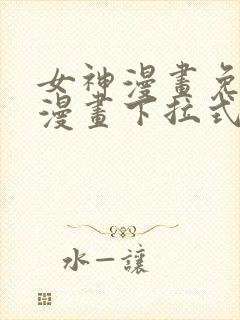 女神漫畫免
漫畫下拉式
水一讓